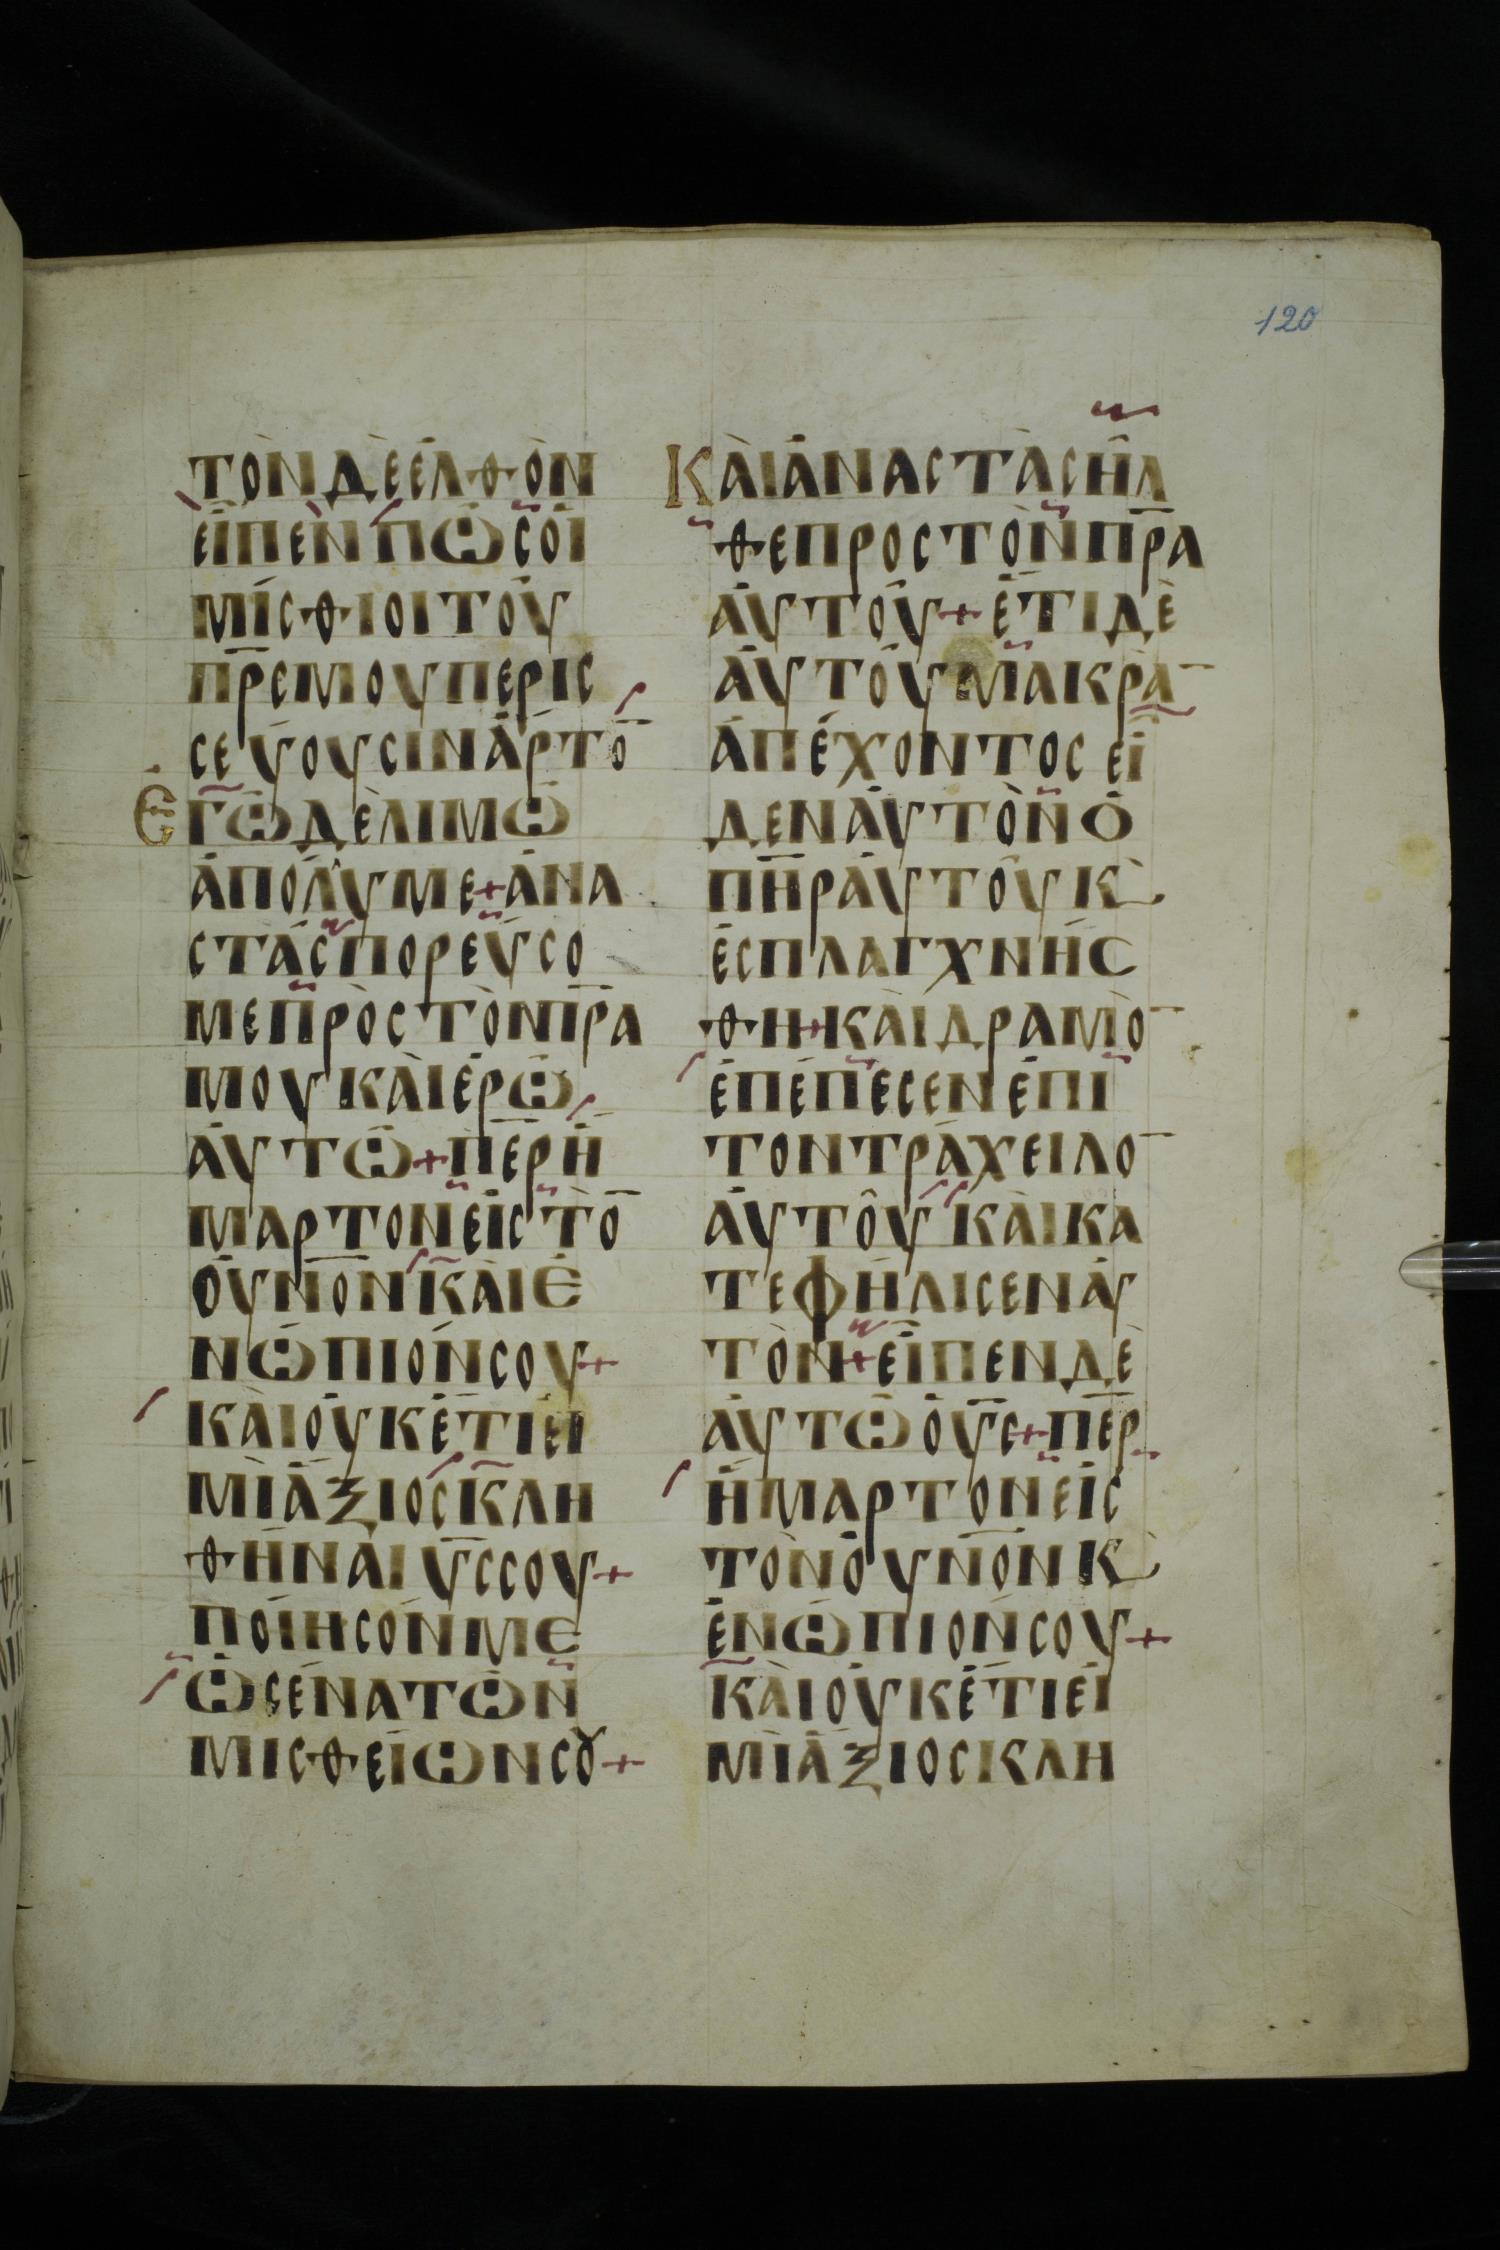 120
ΤῸΝΔῈΕΛΘῸΝ
ΕἾΠΕΝΠΩΣΟΙ
ΜΊΣΘΙΟΙΤΟΥ
Π̅Ρ̅ΣΜΟΥΠΕΡΙΣ
ΣΕΥΟΥΣΙΝΑΡΤΟ̅
ἘΓΩΔῈΛΙΜΩ
ἈΠΟΛΥΜΕ+ἈΝΑ
ΣΤᾺΣΠΟΡΕΥΣΟ
ΜΕΠΡῸΣΤῸΝΠ̅Ρ̅Α
ΜΟΥΚΑῚἘΡΩ
ἈΥΤΩ+Π̅Ε̅Ρ̅Ἡ
ΜΑΡΤΟΝΕἸΣΤῸ̅
ὈΥΝ̅Ο̅ΝΚΑῚἘ
ΝΩΠΙΟΝΣΟΥ+
ΚΑῚὈΥΚΈΤΙΕΙ
ΜῚἌΞΙΟΣΚΛΗ
ΘΗΝΑΙΥ̅Σ̅ΣΟΥ+
ΠΟΙΗΣΟΝΜΕ
ὩΣΕΝΑΤΩΝ
ΜΙΣΘΕΙΩΝΣΟΥ+
ΚΑῚἈΝΑΣΤᾺΣΗΛ
ΘΕΠΡΟΣΤῸΝΠ̅Ρ̅Α
ἈΥΤΟΥ+ἜΤΙΔῈ
ἈΥΤΟΥΜΑΚΡᾺ̅
ἈΠΈΧΟΝΤΟΣΕἾ
ΔΕΝἈΥΤῸΝὉ
Π̅Η̅Ρ̅ἈΥΤΟΥΚ̀
ἘΣΠΛΑΓΧΝΗΣ
ΘΗ+ΚΑῚΔΡΑΜῸ̅
ἘΠΈΠΕΣΕΝἘΠΙ
ΤΟΝΤΡΆΧΕΙΛΟ̅
ἈΥΤΟΥΚΑῚΚΑ
ΤΕΦΗΛΙΣΕΝἈΥ
ΤῸΝ+ΕἾΠΕΝΔῈ
ἈΥΤΩὉΥ̅Σ̅+Π̅Ε̅Ρ̅
ἩΜΑΡΤΟΝΕἸΣ
ΤῸΝὈΥΝ̅Ο̅ΝΚ̀
ἘΝΩΠΙΟΝΣΟΥ+
ΚΑῚὈΥΚΈΤΙΕΙ
ΜῚἌΞΙΟΣΚΛΗ